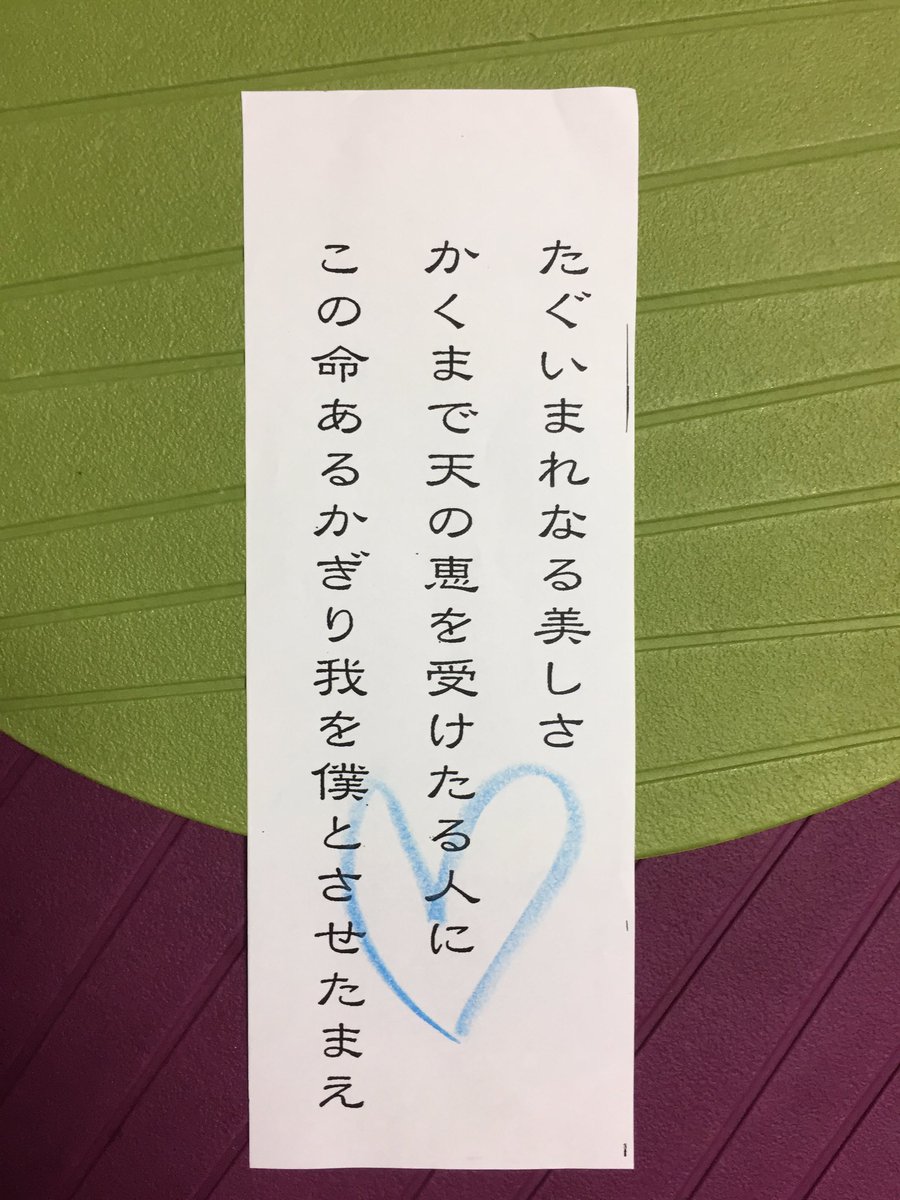 たぐいまれなる美しさ
かくまで天の恵を受けたる人に
この命あるかぎり我を僕とさせたまえ